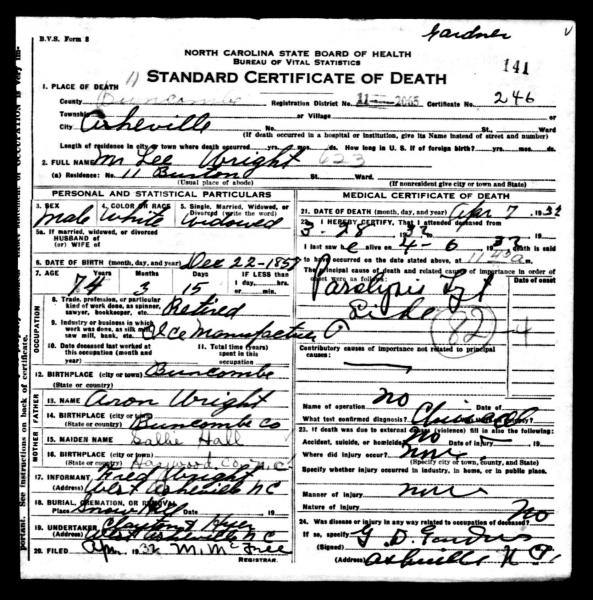 Gardner
B.V.S. Form 8
NORTH CAROLINA STATE BOARD OF HEALTH
BUREAU OF VITAL STATISTICS
141
STANDARD CERTIFICATE OF DEATH
1. PLACE OF DEATH
County Buncombe Registration District No. 11- Certificate No. 246
Township or Village
City Asheville No. St. Ward
(If death occurred in a hospital or institution, give its Name instead of street and number)
Length of residence in city or town where death occurred yrs. mos. ds. How long in U. S. if of foreign birth? yrs. mos. ds.
2. FULL NAME M Lee Wright 623
(a) Residence: No. 11 Burton St. Ward
(Usual place of abode) (If nonresident give city or town and State)
PERSONAL AND STATISTICAL PARTICULARS
3. SEX 4. COLOR OR RACE 5. Single, Married, Widowed, or Divorced (write the word)
Male White Widowed
5a. If married, widowed, or divorced
HUSBAND of
(or) WIFE of
6. DATE OF BIRTH (month, day, and year) Dec 22-1857
7. AGE 74 3 15 Days IF LESS than
1 day, hrs.
or min.
OCCUPATION
8. Trade, profession, or particular kind of work done, as spinner, sawyer, bookkeeper, etc. Retired
9. Industry or business in which work was done, as silk mill, saw mill, bank, etc. Ice Manufacture
10. Date deceased last worked at this occupation (month and year)
11. Total time (years) spent in this occupation
12. BIRTHPLACE (city or town) Buncombe
(State or country)
FATHER
13. NAME Aron Wright
14. BIRTHPLACE (city or town) Buncombe Co
(State or country)
MOTHER
15. MAIDEN NAME Sallie Hall
16. BIRTHPLACE (city or town) Haywood Co N.C.
(State or country)
17. INFORMANT Fred Wright
(Address) West Asheville NC
18. BURIAL, CREMATION, OR REMOVAL
Place Snow Hill
19. UNDERTAKER Clayton & Hyer
(Address) West Asheville N C
20. FILED Apr 1932 M. McFree
REGISTRAR.
MEDICAL CERTIFICATE OF DEATH
21. DATE OF DEATH (month, day, and year) Apr 7, 1932
22. I HEREBY CERTIFY, That I attended deceased from
3-28 32
I last saw e alive on 4-6 32 death is said
to have occurred on the date stated above, at
The principal cause of death and related causes of importance in order of onset were as follows:
Date of onset
Paralysis Lft
Side
82
4
Contributory causes of importance not related to principal causes:
Name of operation no Date of
What test confirmed diagnosis? Clinical
23. If death was due to external causes (violence) fill in also the following:
Accident, suicide, or homicide? No Date of injury 19
Where did injury occur? none
(Specify city or town, county, and State)
Specify whether injury occurred in industry, in home, or in public place.
Manner of injury none
Nature of injury
24. Was disease or injury in any way related to occupation of deceased? No
If so, specify
(Signed) G. D. Gardner
(Address) Asheville N C
portant. See instructions on back of certificate.